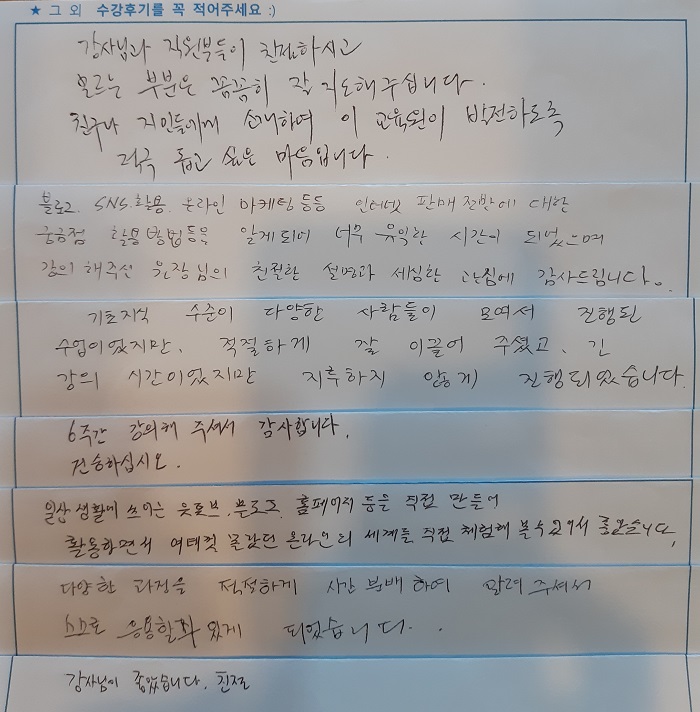 ★ 그 외 수강후기를 꼭 적어주세요 :)
강사님과 직원부들이 친절하시고
모르는 부분은 꼼꼼히 잘 지도해주십니다.
친구나 지인들에게 소개하여 이 교육원이 발전하도록
적극 돕고 싶은 마음입니다.
블로그. SNS.활용. 온라인 마케팅 등등 인터넷 판매 전반에 대한
궁금점 활용방법등을 알게되어 너무 유익한 시간이 되었으며
강의 해주신 원장님의 친절한 설명과 세심한 관심에 감사드립니다.
기초지식 수준이 다양한 사람들이 모여서 진행된
수업이었지만, 적절하게 잘 이끌어 주셨고, 긴
강의 시간이었지만 지루하지 않게 진행되었습니다.
6주간 강의해 주셔서 감사합니다.
건승하십시오.
일상생활에 쓰이는 유튜브. 블로그. 홈페이지 등을 직접 만들어
활동하면서 여태껏 몰랐던 온라인의 세계를 직접 체험해 볼수있어서 좋았습니다.
다양한 과정을 적절하게 시간 분배하여 알려주셔서
스스로 응용할수 있게 되었습니다.
강사님이 좋았습니다. 친절